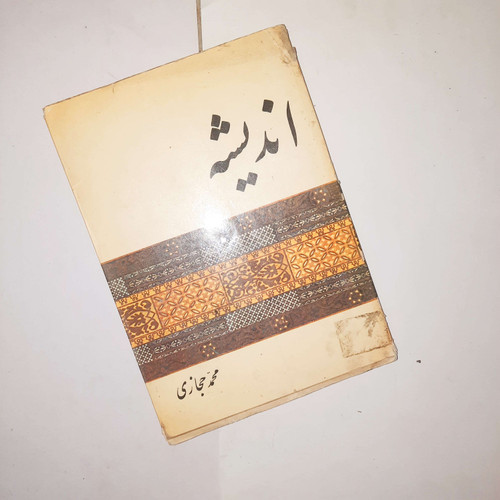 اندیشه
محمد حجازی